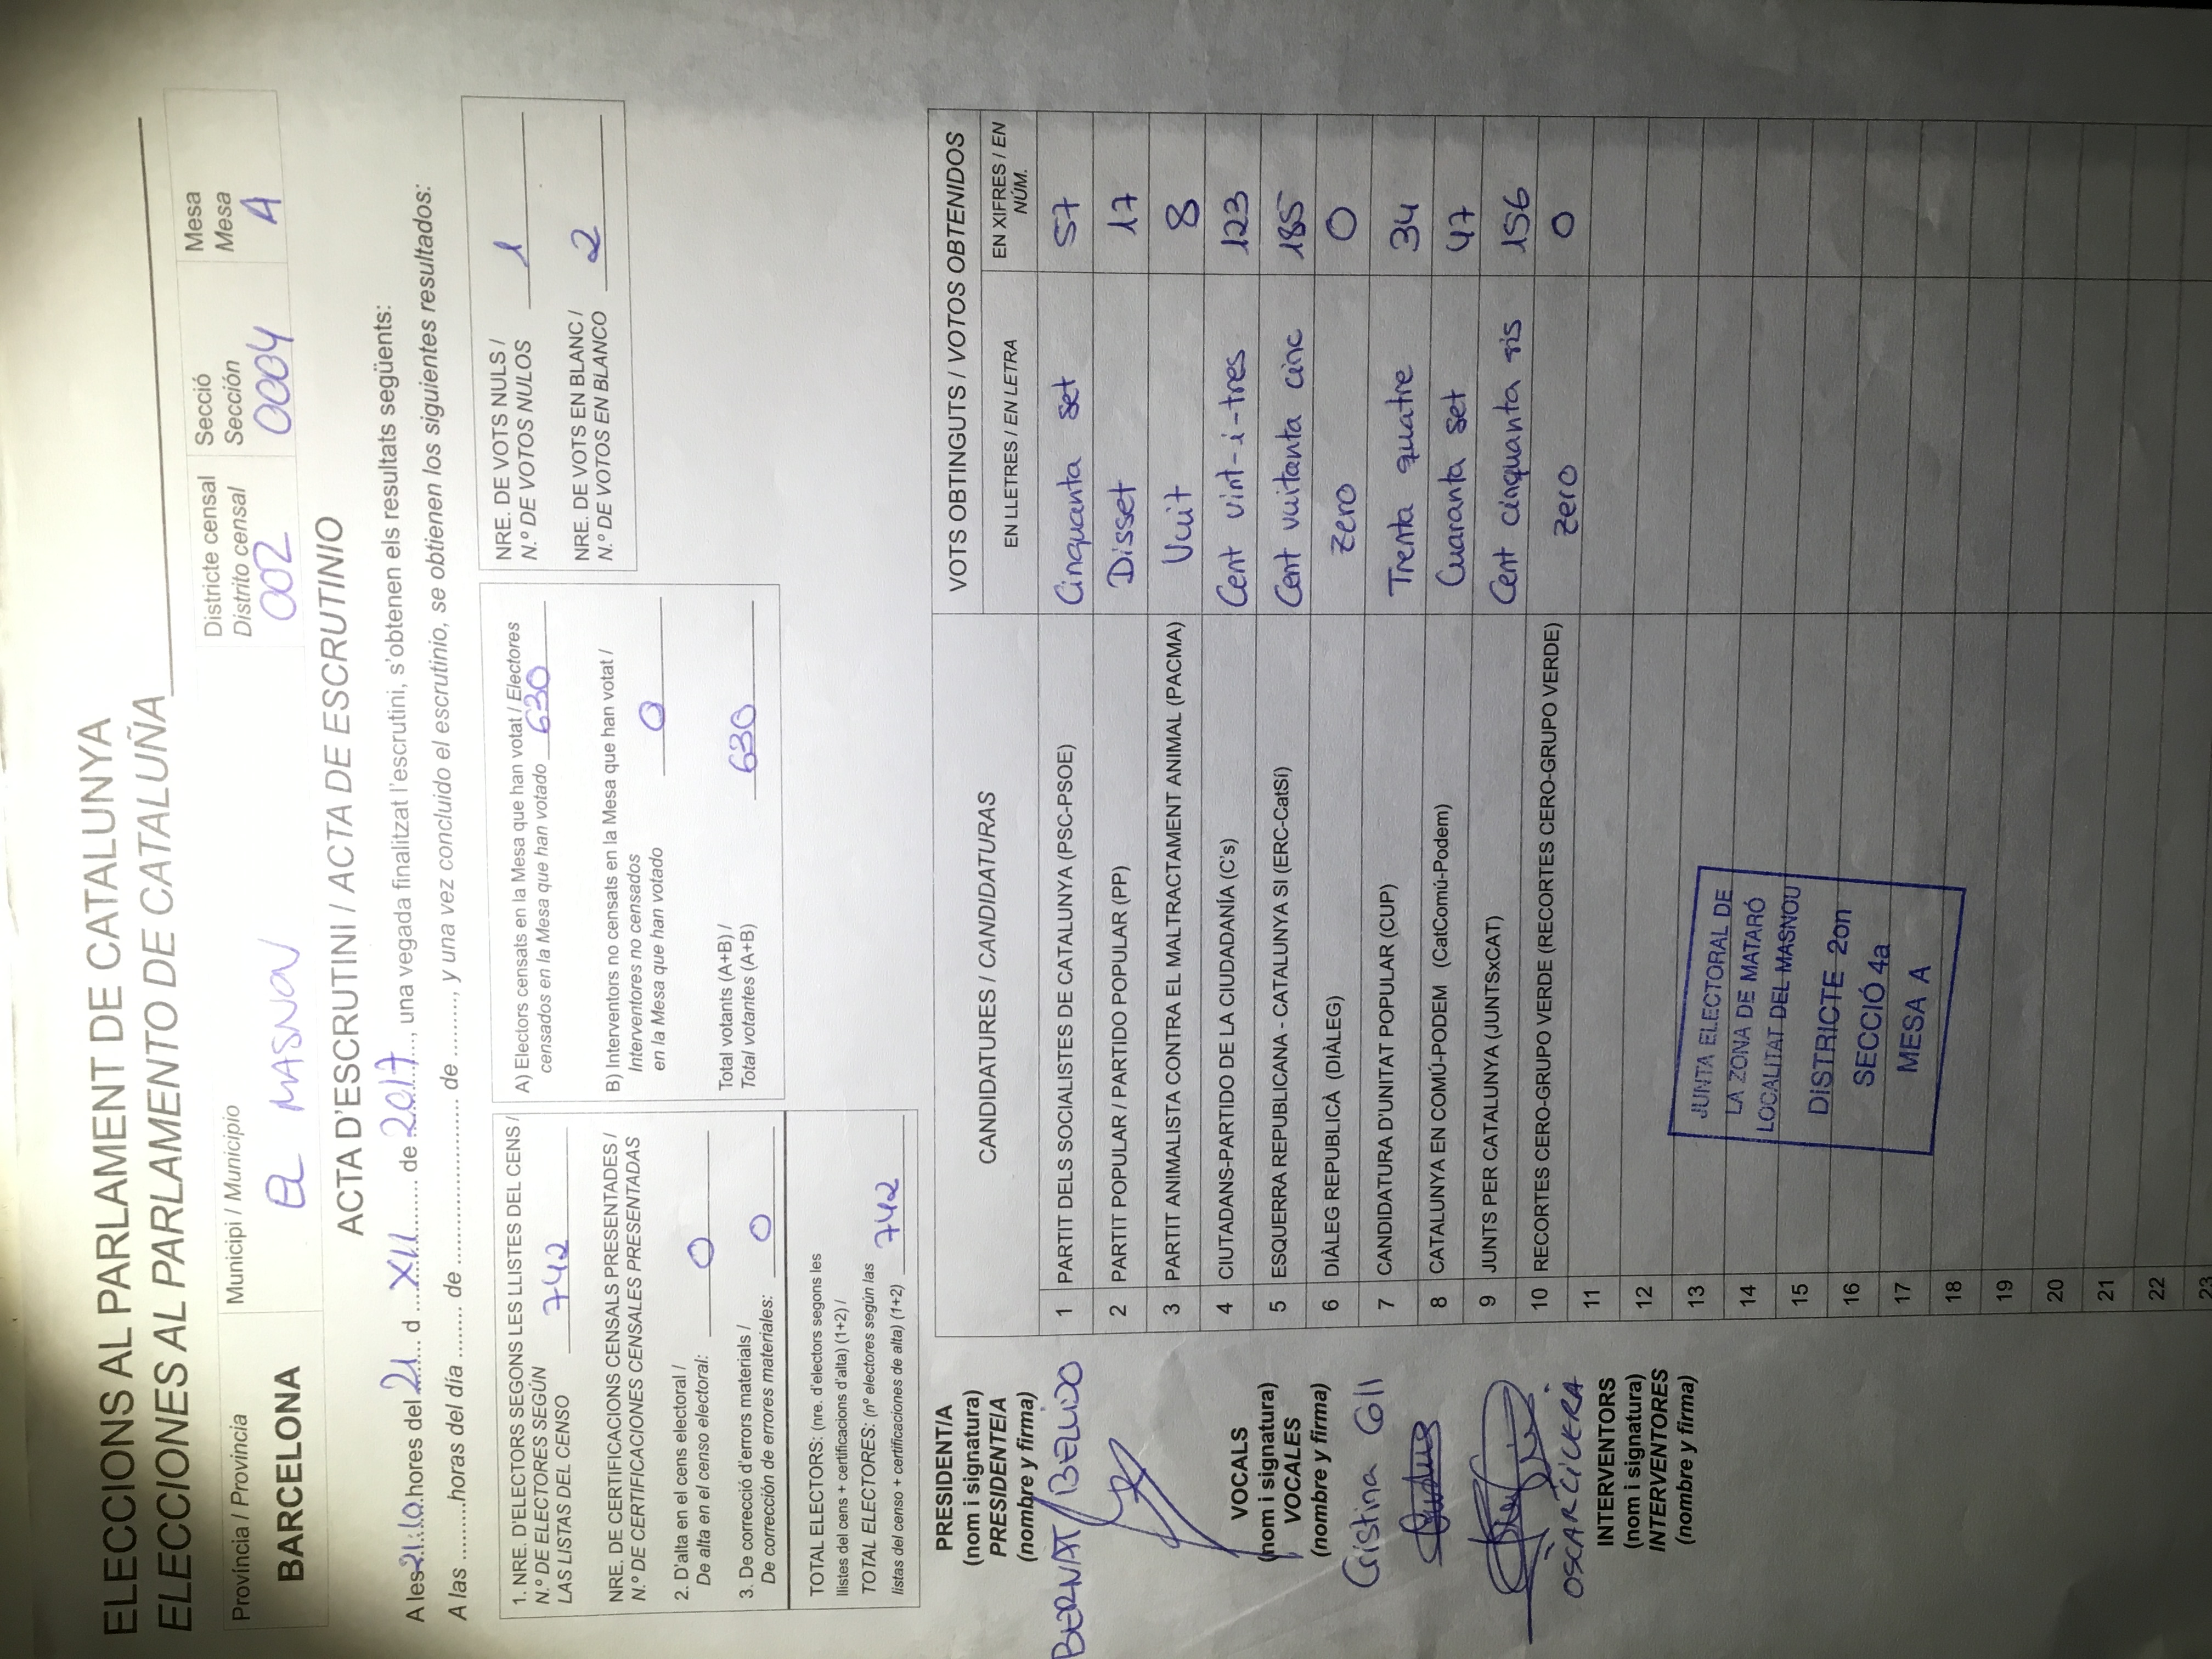 ELECCIONS AL PARLAMENT DE CATALUNYA
ELECCIONES AL PARLAMENTO DE CATALUÑA
Província / Provincia
BARCELONA
Municipi / Municipio
EL MASNOU
Districte censal
Distrito censal
002
Secció
Sección
0004
Mesa
Mesa
A
ACTA D'ESCRUTINI / ACTA DE ESCRUTINIO
A les 21:10 hores del 21 d XII de 2017, una vegada finalitzat l'escrutini, s'obtenen els resultats següents:
A las .........horas del día ........ de .......................... de ........., y una vez concluido el escrutinio, se obtienen los siguientes resultados:
1. NRE. D'ELECTORS SEGONS LES LLISTES DEL CENS /
N.º DE ELECTORES SEGÚN
LAS LISTAS DEL CENSO 742
NRE. DE CERTIFICACIONS CENSALS PRESENTADES /
N.º DE CERTIFICACIONES CENSALES PRESENTADAS
2. D'alta en el cens electoral /
De alta en el censo electoral: 0
3. De correcció d'errors materials /
De corrección de errores materiales: 0
TOTAL ELECTORS: (nre. d'electors segons les
llistes del cens + certificacions d'alta) (1+2) /
TOTAL ELECTORES: (nº electores según las
listas del censo + certificaciones de alta) (1+2) 742
A) Electors censats en la Mesa que han votat / Electores
censados en la Mesa que han votado 630
B) Interventors no censats en la Mesa que han votat /
Interventores no censados
en la Mesa que han votado 0
Total votants (A+B) /
Total votantes (A+B) 630
NRE. DE VOTS NULS /
N.º DE VOTOS NULOS 1
NRE. DE VOTS EN BLANC /
N.º DE VOTOS EN BLANCO 2
PRESIDENT/A
(nom i signatura)
PRESIDENTE/A
(nombre y firma)
BERNAT BELLIDO
VOCALS
(nom i signatura)
VOCALES
(nombre y firma)
Cristina Coll
OSCAR CIVERA
INTERVENTORS
(nom i signatura)
INTERVENTORES
(nombre y firma)
CANDIDATURES / CANDIDATURAS
VOTS OBTINGUTS / VOTOS OBTENIDOS
EN LLETRES / EN LETRA
EN XIFRES / EN
NÚM.
1 PARTIT DELS SOCIALISTES DE CATALUNYA (PSC-PSOE) Cinquanta set 57
2 PARTIT POPULAR / PARTIDO POPULAR (PP) Disset 17
3 PARTIT ANIMALISTA CONTRA EL MALTRACTAMENT ANIMAL (PACMA) Vuit 8
4 CIUTADANS-PARTIDO DE LA CIUDADANÍA (C's) Cent vint-i-tres 123
5 ESQUERRA REPUBLICANA - CATALUNYA SI (ERC-CatSí) Cent vuitanta cinc 185
6 DIÀLEG REPUBLICÀ (DIÀLEG) Zero 0
7 CANDIDATURA D'UNITAT POPULAR (CUP) Trenta quatre 34
8 CATALUNYA EN COMÚ-PODEM (CatComú-Podem) Cuaranta set 47
9 JUNTS PER CATALUNYA (JUNTSxCAT) Cent cinquanta sis 156
10 RECORTES CERO-GRUPO VERDE (RECORTES CERO-GRUPO VERDE) Zero 0
11
12
13
14
15
16
17
18
19
20
21
22
23
JUNTA ELECTORAL DE
LA ZONA DE MATARÓ
LOCALITAT DEL MASNOU
DISTRICTE 2on
SECCIÓ 4a
MESA A